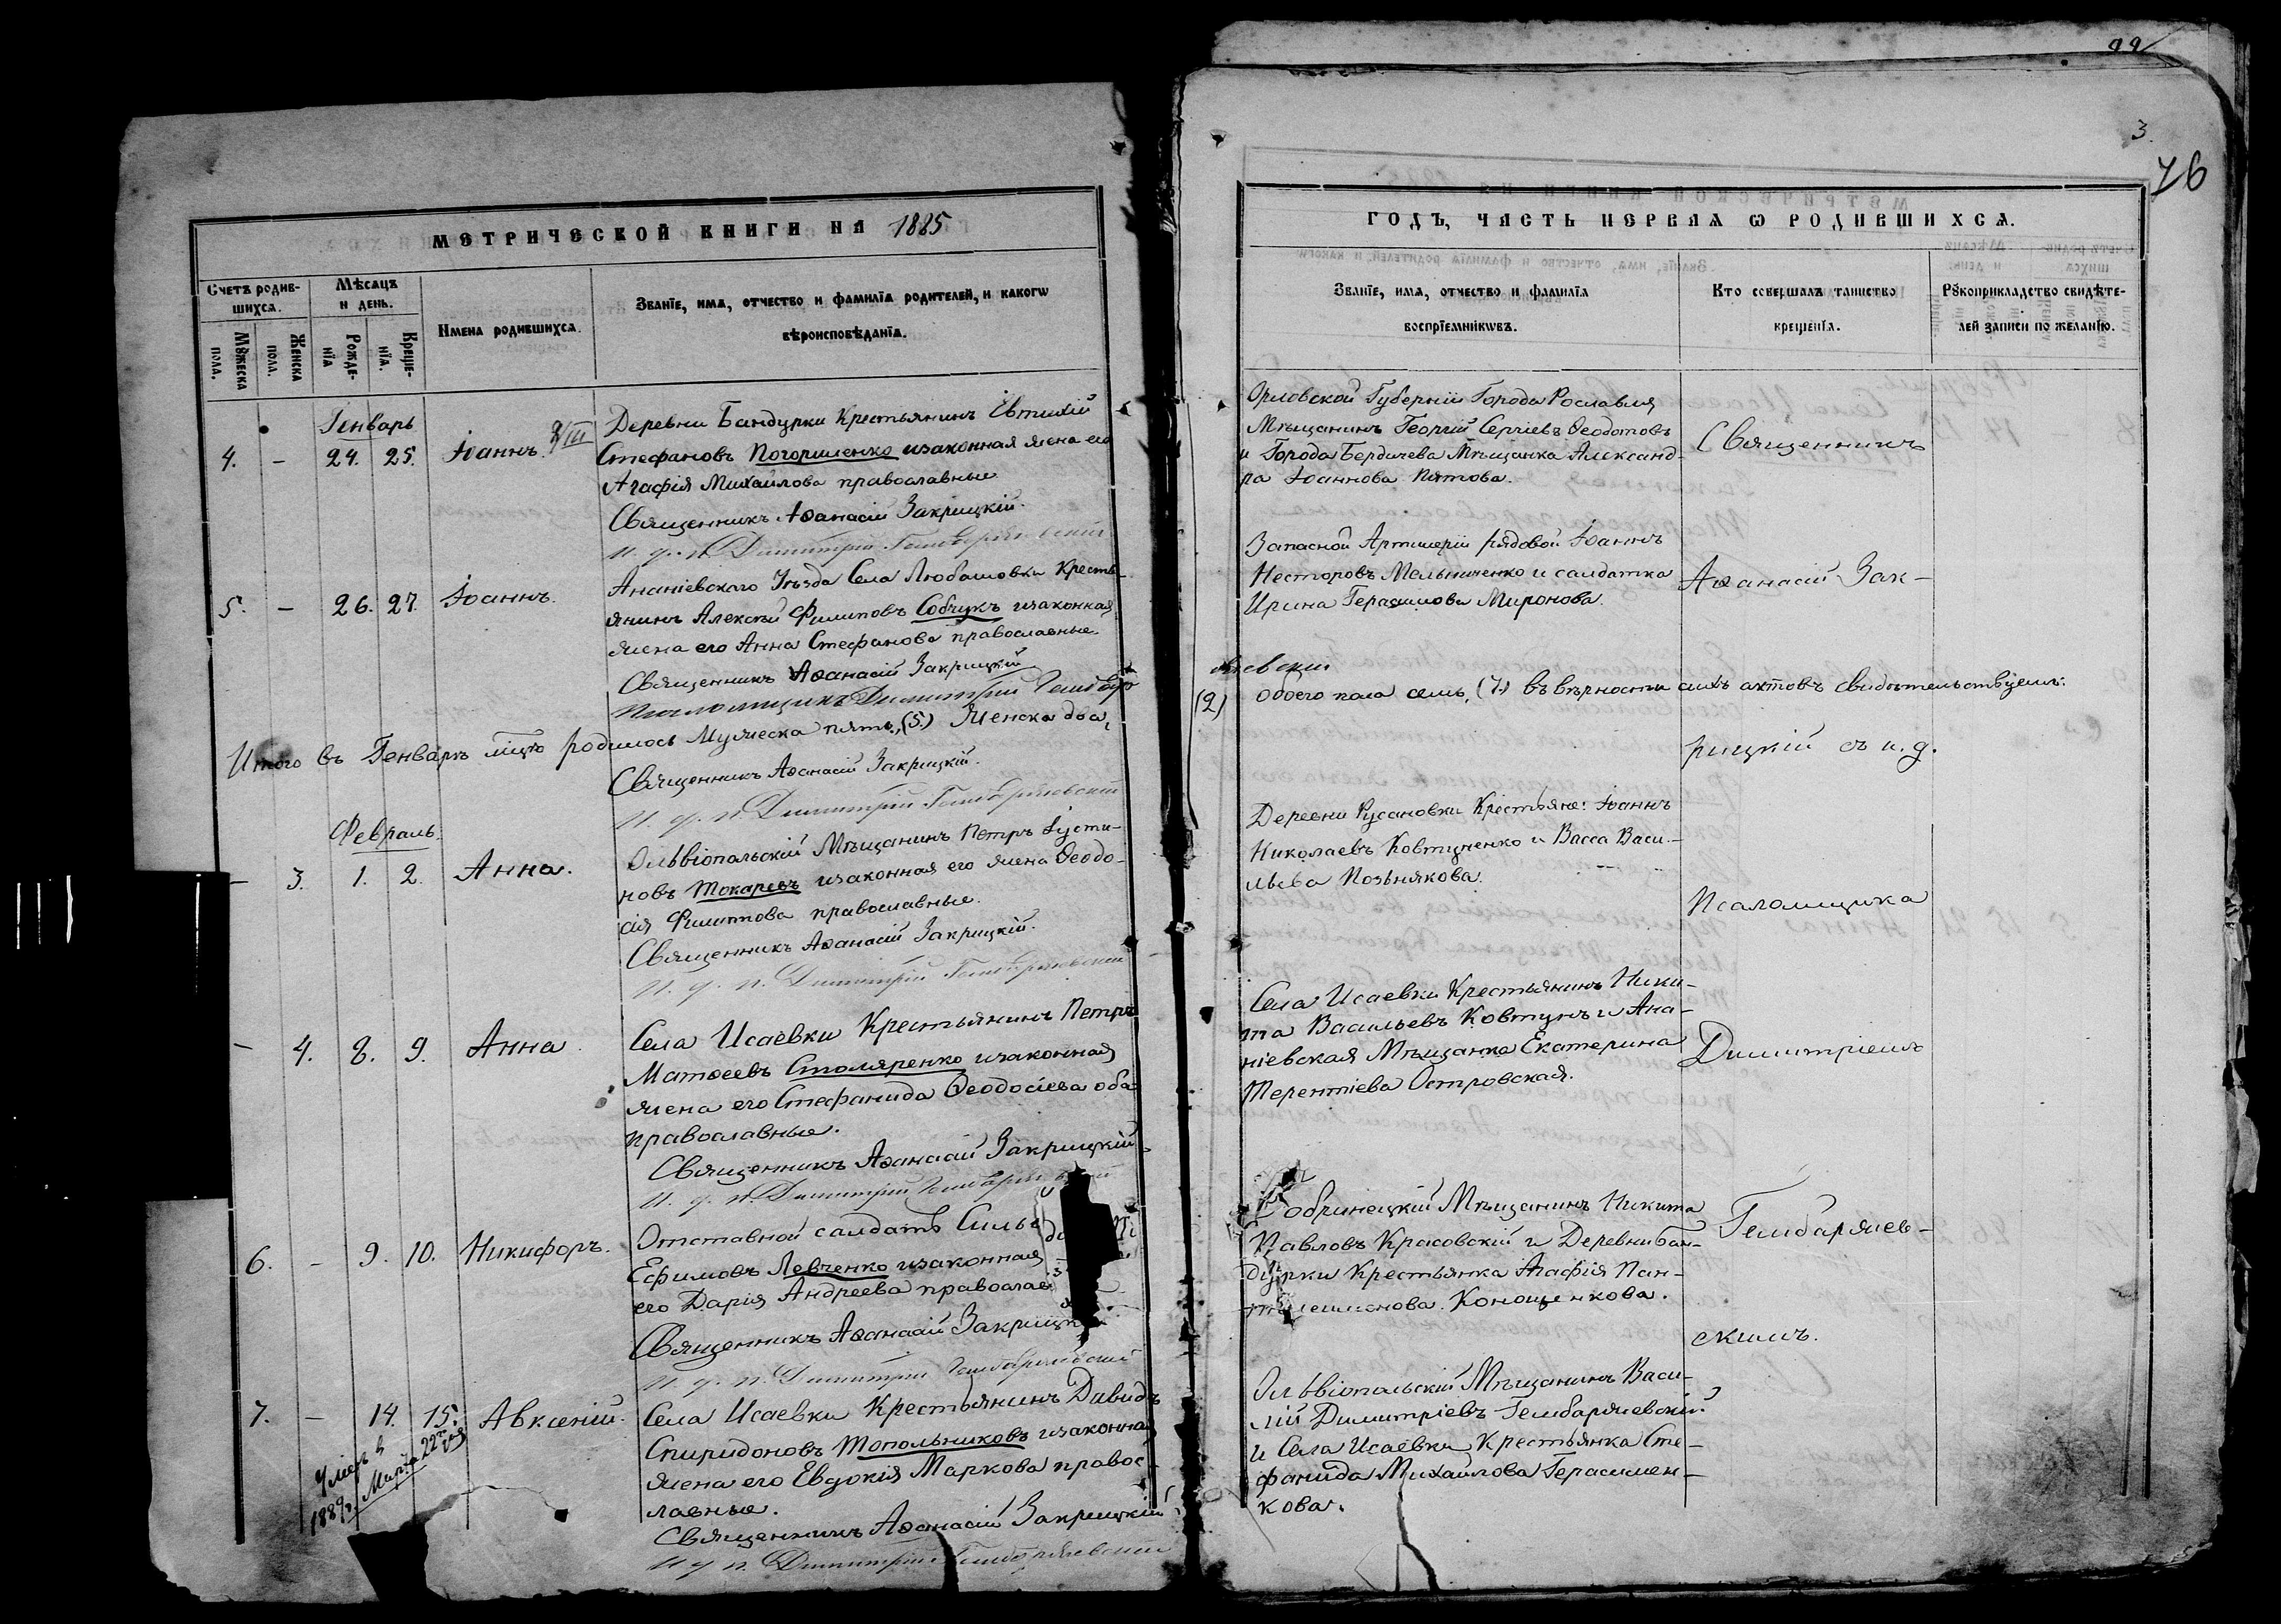 МЕТРИЧЕСКОЙ КНИГИ НА 1885
Счетъ родив-
шихсѧ.
Мѹжеска
пола.
Женска
пола.
Мѣсяцъ
и день.
Рожде-
нїѧ
Креще-
нїѧ.
Имена родившихсѧ.
Званїе, имѧ, отчество и фамилїѧ родителей, и какогѡ
вѣроисповѣданїѧ.
Генварь
4. - 24. 25. Іоаннъ.
Деревни Бандурки Крестьянинъ Евтихій
Стефановъ Погориленко изаконная жена его
Агафія Михайлова православные.
Священникъ Аѳанасій Закрицкій.
И. д. п. Димитрій Гембаржевскій
5. - 26. 27. Іоаннъ.
Ананіевскаго Уѣзда Села Любашовки Кресть-
янинъ Алексѣй Филиповъ Собчукъ изаконная
жена его Анна Стефанова православные.
Священникъ Аѳанасій Закрицкій
Псаломщикъ Димитрій Гембар
Итого въ Генварѣ мцѣ родилось Мужеска пять, (5.) Женска два,
Священникъ Аѳанасій Закрицкій.
И. д. п. Димитрій Гембаржевскій
Февраль.
- 3. 1. 2. Анна.
Ольвіопольскій Мѣщанинъ Петръ Іусти-
новъ Токаревъ изаконная его жена Ѳеодо-
сія Филипова православные.
Священникъ Аѳанасій Закрицкій.
И. д. п. Димитрій Гембаржевскій
- 4. 8. 9. Анна.
Села Исаевки Крестьянинъ Петръ
Матѳеевъ Столяренко изаконная
жена его Стефанида Ѳеодосіева оба
православные.
Священникъ Аѳанасій Закрицкій
И. д. п. Димитрій Гембаржевскій
6. - 9. 10. Никифоръ.
Отставной салдатъ
Ефимовъ Левченко изаконная
его Дарія Андреева православ
Священникъ Аѳанасій Закрицк
И. д. п. Димитрій Гембаржевскій
7. - 14. 15. Авксентій.
Умеръ
1889г. Марта 22го дня
Села Исаевки Крестьянинъ Давидъ
Спиридоновъ Топольниковъ изаконная
жена его Евдокія Маркова правос-
лавные.
Священникъ Аѳанасій Закрицкій
И д п. Димитрій Гембаржевскій
99
3.
76
ГОДЪ, ЧАСТЬ ПЕРВАѦ Ѡ РОДИВШИХСѦ.
Званїе, имѧ, отчество и фамилїѧ
воспрїемникѡвъ.
Кто совершалъ таинство
крещенїѧ.
Рѹкоприкладство свидѣте-
лей записи по желанїю.
Орловской Губерніи Города Рославля
Мѣщанинъ Георгій Сергіевъ Ѳеодотовъ
и Города Бердичева Мѣщанка Александ-
ра Іоаннова Пятова.
Священникъ
Запасной Артилеріи рядовой Іоаннъ
Несторовъ Мельниченко и салдатка
Ирина Герасимова Миронова.
Аѳанасій Зак-
жевскій
(2) обоего пола семь, (7.) въ вѣрности сихъ актовъ свидѣтельствуемъ:
рицкій съ и. д.
Деревни Русановки Крестьяне: Іоаннъ
Николаевъ Ковтуненко и Васса Васи-
льева Позьнякова.
Псаломщика
Села Исаевки Крестьянинъ Ники-
та Васильевъ Ковтунъ и Ана-
ніевская Мѣщанка Екатерина
Терентіева Островская.
Димитріемъ
Бобринецкій Мѣщанинъ Никита
Павловъ Красовскій и Деревни Бан-
дурки Крестьянка Агафія Пан-
телеимонова Конощенкова.
Гембаржев-
скимъ.
Ольвіопольскій Мѣщанинъ Васи-
лій Димитріевъ Гембаржевскій
и Села Исаевки Крестьянка Сте-
фанида Михайлова Герасимен-
кова.